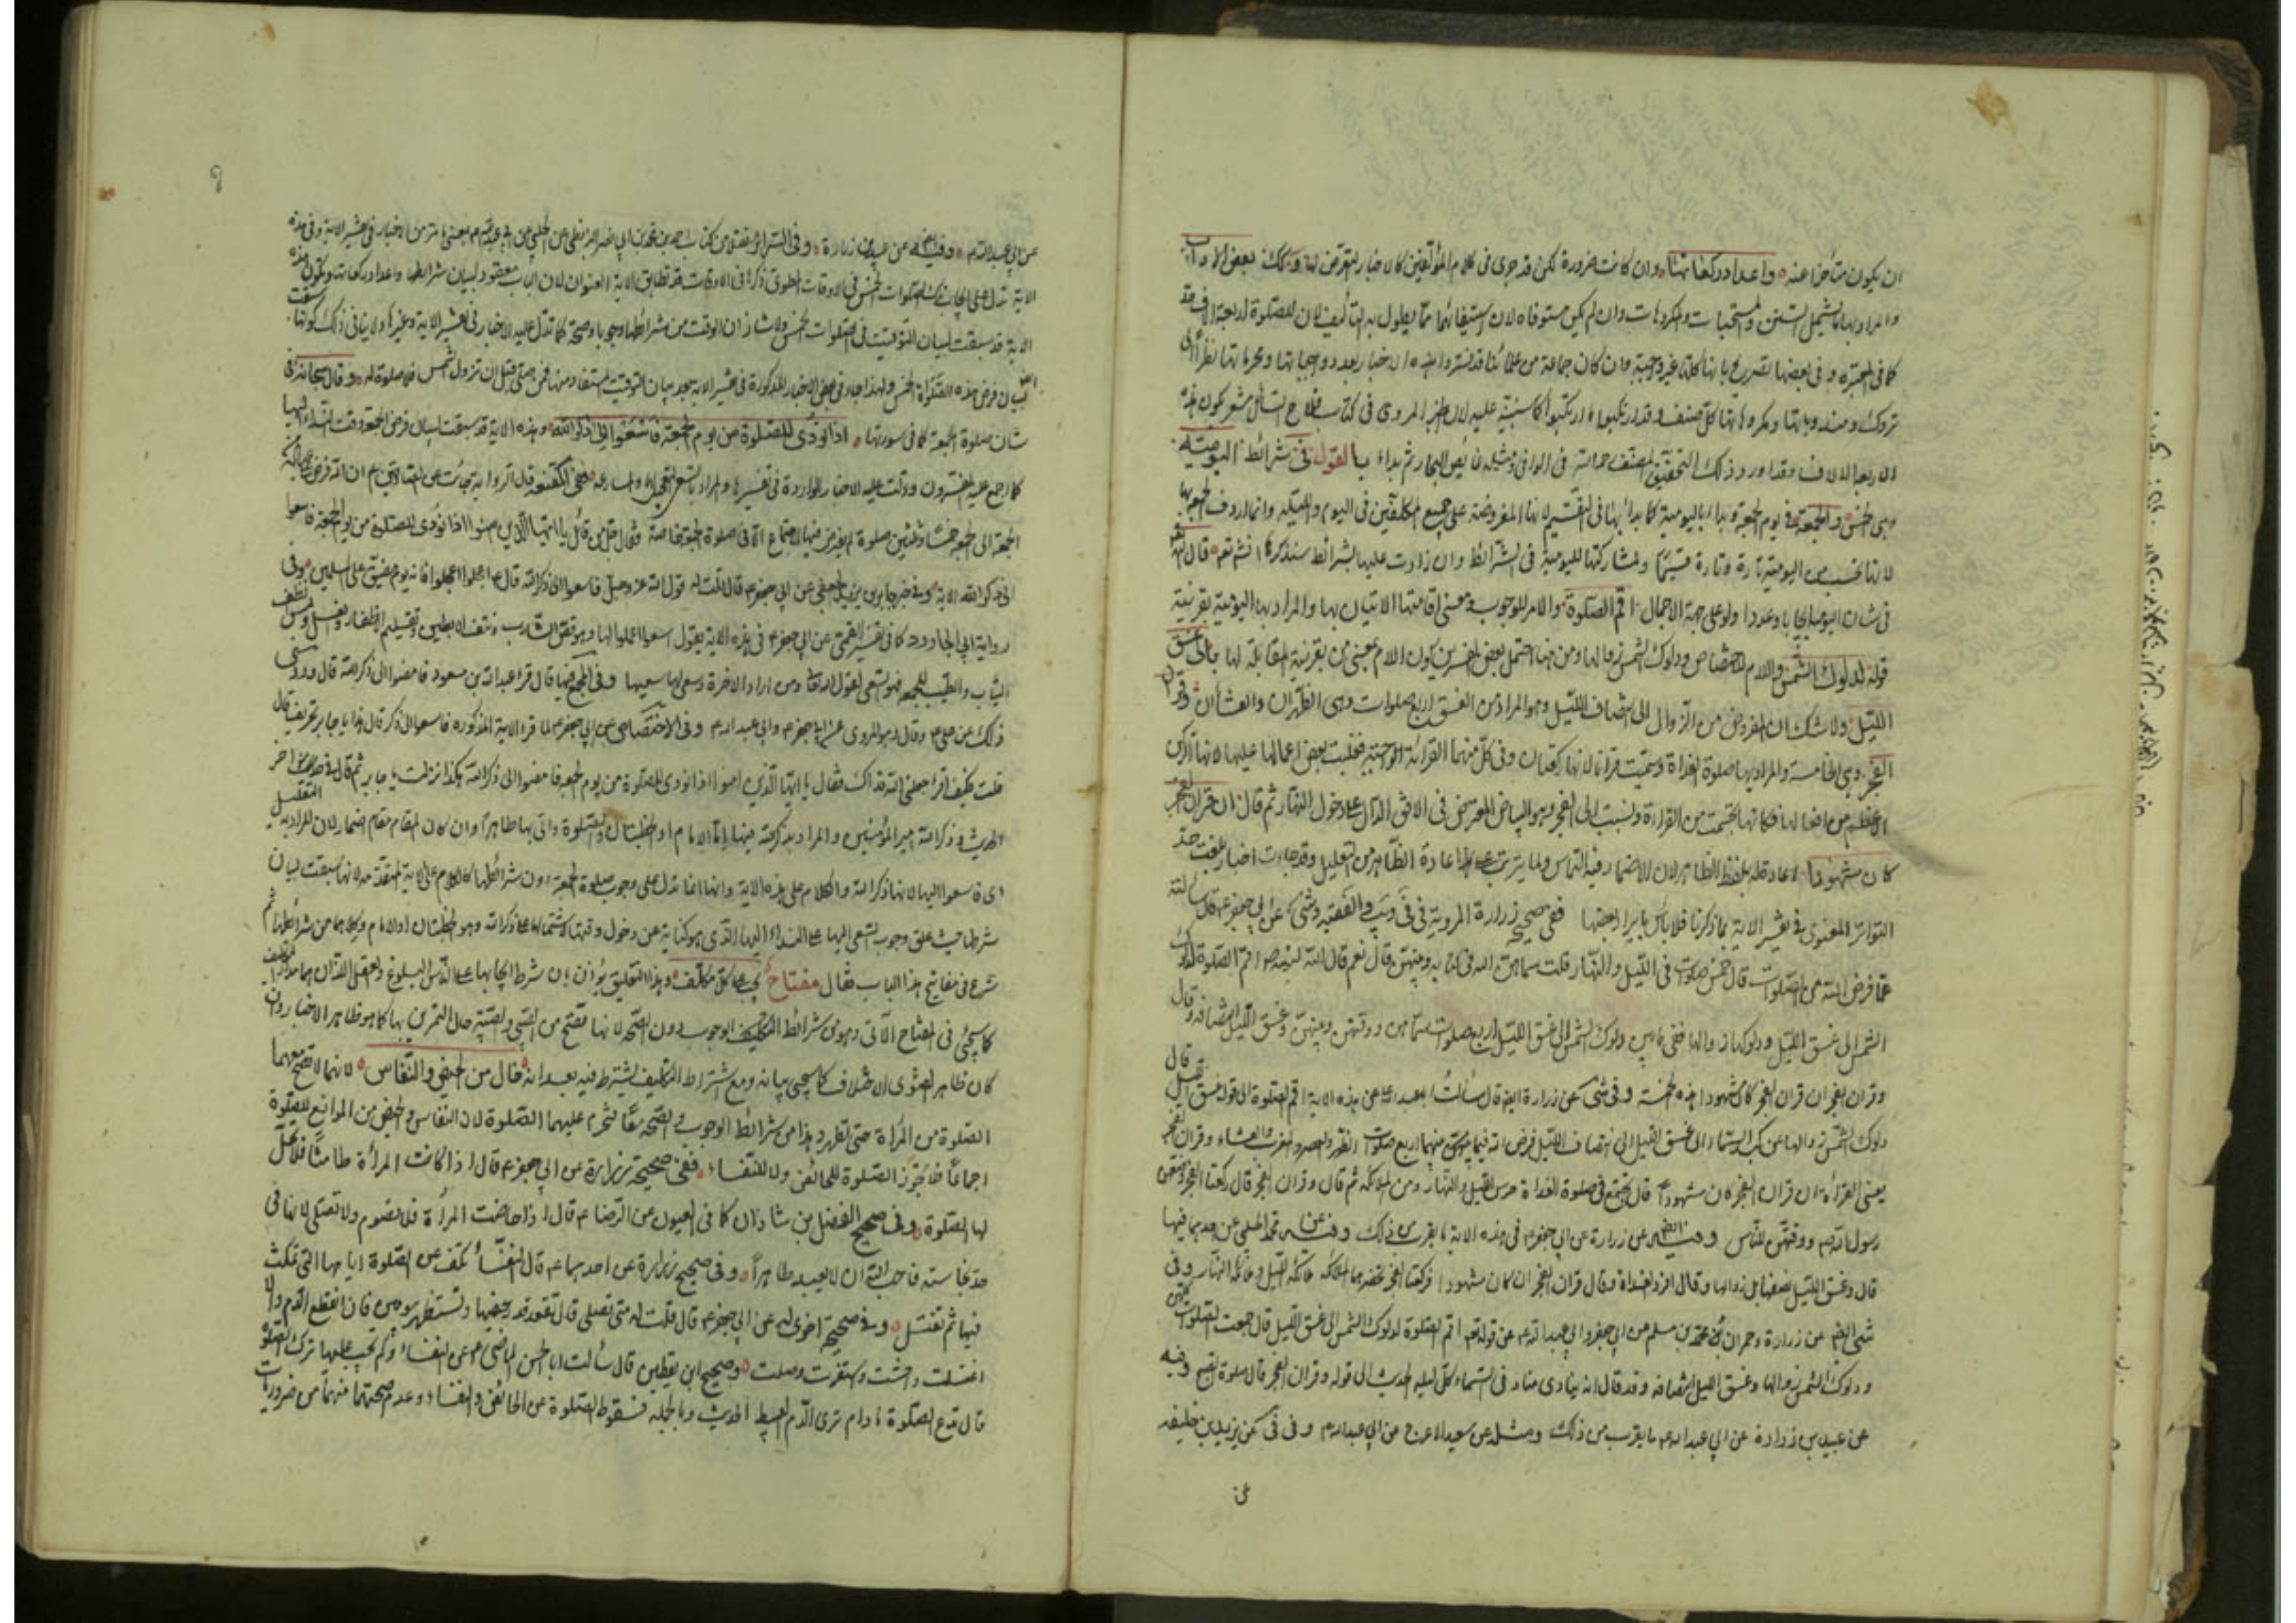 ان يكون متأخرا عنه واعداد ركعاتها وان كانت ضرورة لكن قد جرى في كلام المؤلفين كالاخبار التعرض لها وكك بعض الآداب
والمراد بها ما يشمل السنن والمستحبات والمكروهات وان لم يكن مستوفاه لان استيفائها مما يطول به التأليف لان للصلوة اربعة الاف حد
كما في المعتبرة وفي بعضها تصريح بانها كلها غير واجبة وان كان جماعة من علمائنا قد فسروا هذه الاخبار بعدد واجباتها ومحرماتها نظرا الى
تروك ومندوباتها ومكروهاتها كل صنف
الاربعة الالاف وقد اورد ذلك التحقيق المصنف رحمه الله في الوافي ثم بداء بالقول في شرائط اليوميّة
وهي الخمس والجمعة في يوم الجمعة وبدا باليومية كما بدا بها في التقسيم لانها المفروضة على جميع المكلفين في اليوم والليلة وانما اردف الجمعة بها
لانها تحسب من اليومية تارة وتارة قسيمًا ولمشاركتها لليومية في الشرائط وان زادت عليها بشرائط سنذكرها انشاء تعم قال الله تعم
في شان اليومية ايجابا وعددا ولو على جهة الاجمال اقم الصلوة والامر للوجوب ومعنى اقامتها الاتيان بها والمراد بها اليومية بقرينة
قوله لدلوك الشمس واللام للاختصاص ودلوك الشمس زوالها ومن هنا احتمل بعض المفسرين كون اللام بمعنى من بقرينة المقابلة لها بالى غسق
الليل ولا شك ان المفروض من الزوال الى انتصاف الليل وهو المراد من الغسق اربع صلوات وهي الظهران والعشاان وقران
الفجر وهي الخامسة والمراد بها صلوة الغداة وسميت قرانا لانها ركعتان وفي كل منهما القرائة الواجبة فغلبت بعض اعمالها عليها لانها
الاعظم من افعالها فكانها تجسمت من القراءة ونسبت الى الفجر وهو البياض المعترض في الافق الدال على دخول النهار ثم قال ان قران الفجر
كان مشهودا اعادة له بلفظ الظاهر لان الاضمار فيه التماس ولما يترتب على اعادة الظاهر من التعليل وقد جاءت اخبار بلغت حد
التواتر المعنوى في تفسير الاية بما ذكرنا فلا باس بايراد بعضها ففي صحيح زرارة المروية في عن ابي جعفر ع قال سألته
عما فرض الله من الصلوات قال خمس صلوات في الليل والنهار قلت سماهن الله في كتابه وبينهن قال نعم قال الله لنبيه ص اقم الصلوة لدلوك
الشمس الى غسق الليل ودلوكها زوالها ففي ما بين دلوك الشمس الى غسق الليل اربع صلوات سماهن ووقتهن وبينهن وغسق الليل انتصافه وقال
وقران الفجر ان قران الفجر كان مشهودا هذه الخامسة وفي شى عن زرارة ايضا قال سألت ابا عبد الله ع عن هذه الاية اقم الصلوة الى قوله غسق الليل قال
دلوك الشمس زوالها عن كبد السماء الى غسق الليل الى انتصاف الليل فرض الله فيما بينهما اربع صلوات الظهر والعصر والمغرب والعشاء وقران الفجر
يعنى القراءة ان قران الفجر كان مشهودا قال يجتمع في صلوة الغداة حرس الليل والنهار ومن الملائكة ثم قال وقران الفجر قال ركعتا الفجر
رسول الله ص ووقتهن للناس وفيه عن زرارة عن ابي جعفر ع في هذه الاية ما يقرب من ذلك وفيه عن محمد الحلبى عن احدهما فيها
قال وغسق الليل نصفها بل زوالها وقال افرد الغداة وقال قران الفجر ان كان مشهودا فركعتا الفجر تحضرهما الملائكة ملائكة الليل وملائكة النهار وفي
شى ايضا عن زرارة وحمران ومحمد بن مسلم عن ابي جعفر وابي عبد الله ع عن قوله تعم اقم الصلوة لدلوك الشمس الى غسق الليل قال جمعت الصلوات كلهن
ودلوك الشمس زوالها وغسق الليل انتصافه وقد قال انه ينادى مناد في السماء كل ليلة الحديث الى قوله وقران الفجر قال صلوة الصبح وفيه
عن عبيد بن زرارة عن ابي عبد الله ع ما يقرب من ذلك ومثله عن سعيد الاعرج عن ابي عبد الله ع وفي عن يزيد بن خليفه
عن ابي عبد الله ع وفيه عن عبيد بن زرارة وفي السرائر نقلا من كتاب احمد بن محمد بن ابي نصر البزنطى عن الحلبى عن ابي عبد الله ع بمعنى ما مر من الاخبار في تفسير الاية وفي هذه
الاية تدل على ايجاب الصلوات الخمس في الاوقات لان الباب معقود لبيان شرائطها واعداد ركعاتها
الاية قد سيقت لبيان التوقيت في الصلوات الخمس ولا شك ان الوقت من شرائطها وجوبا وصحة كما تدل عليه الاخبار في تفسير الاية وغيرها ولا ينافي ذلك كونها سيقت
لبيان فرض هذه الصلوات الخمس ولهذا جاء في بعض الاخبار المذكورة في تفسير الاية بعد بيان التوقيت المستفاد منها فمن صلى قبل ان تزول الشمس فلا صلوة له وقال سبحانه في
شان صلوة الجمعة كما في سورتها اذا نودى للصلوة من يوم الجمعة فاسعوا الى ذكر الله وهذه الاية قد سيقت لبيان فرض الجمعة وقت النداء اليها
كما اجمع عليه المفسرون ودلت عليه الاخبار الواردة في تفسيرها والمراد بالسعى ففي الفقيه قال الرواية جائت عن الصادقين ع ان الله فرض
الجمعة الى الجمعة خمسا وثلثين صلوة لم يفرض فيها الاجتماع الا في صلوة الجمعة خاصة فقال عز من قائل يا ايها الذين امنوا اذا نودى للصلوة من يوم الجمعة فاسعوا
الى ذكر الله الاية وفي خبر جابر بن يزيد الجعفى عن ابي جعفر ع قال قلت له قول الله عز وجل فاسعوا الى ذكر الله قال ع اعملوا وعجلوا فانه يوم مضيق على المسلمين وفي
رواية ابي الجارود كما في تفسير القمى عن ابي جعفر ع في هذه الاية يقول اسعوا اعملوا لها وهو قص الشارب ونتف الابطين وتقليم الاظفار والغسل ولبس انظف
الثياب والطيب للجمعة فهو السعى لقول الله تعالى ومن اراد الاخرة وسعى لها سعيها وفي المجمع فيها قال قرا عبد الله بن مسعود فامضوا الى ذكر الله قال وروى
ذلك عن على ع وقال وهو المروى عن ابي جعفر ع وابي عبد الله ع وفي الاختصاص عن ابي جعفر ع لما قرا الاية المذكورة فاسعوا الى ذكر قال هذا يا جابر تحريف قال
قلت فكيف اقرا جعلنى الله فداك فقال يا ايها الذين امنوا اذا نودى للصلوة من يوم الجمعة فامضوا الى ذكر الله هكذا نزلت يا جابر ثم قال في اخر
الحديث وذكر الله امير المؤمنين والمراد بذكر الله فيها اما الامام او الخطبتان والصلوة واتى بها ظاهرا وان كان المقام مقام اضمار لان المراد به التعليل
اى فاسعوا اليها لانها ذكر الله والكلام على هذه الاية وانها انما تدل على وجوب صلوة الجمعة دون شرائطها كالكلام على الاية المتقدمة لانها سيقت لبيان
شرطها حيث علق وجوب السعى اليها على النداء اليها الذى هو كناية عن دخول وقتها كاشتمالها على ذكر الله وهو الخطبتان او الامام وكلاهما من شرائطها ثم
شرع في مفاتيح هذا الباب فقال مفتاح يجب على كل مكلف وهذا التعليق يؤذن بان شرط ايجابها على الناس البلوغ والعقل اللذان هما مدار التكليف
كما سيجئ في المفتاح الآتى وهو من شرائط التكليف الوجوب دون الصحة لانها تصح من الصبى والصبية حال التمرين بها كما هو ظاهر الاخبار وان
كان ظاهر الفتوى الاختلاف كما سيجئ بيانه ومع اشتراط التكليف يشترط فيه بعد انه خال من الحيض والنفاس لانهما لا تصح معهما
الصلوة من المرأة حتى تطهر وهذا من شرائط الوجوب والصحة معًا فتحرم عليهما الصلوة لان النفاس والحيض من الموانع للصلوة
اجماعًا فلا تجوز الصلوة للحائض ولا للنفساء ففي صحيحة زرارة عن ابي جعفر ع قال اذا كانت المرأة طامثًا فلا تحل
لها الصلوة وفي صحيح الفضل بن شاذان كما في العيون عن الرضا ع قال اذا حاضت المرأة فلا تصوم ولا تصلى لانها في
حد نجاسة فاحب الله ان لا يعبد الا طاهرًا وفي صحيح زرارة عن احدهما ع قال النفساء تكف عن الصلوة ايامها التي تمكث
فيها ثم تغتسل وفي صحيحة اخرى له عن ابي جعفر ع قال قلت له متى تصلى قال تقعد قدر حيضها وتستظهر بيومين فان انقطع الدم والا
اغتسلت واحتشت واستثفرت وصلت وصحيح ابن يقطين قال سألت ابا الحسن الماضى ع عن النفساء وكم تجب عليها ترك الصلوة
قال تدع الصلوة ما دام ترى الدم العبيط الحديث وبالجملة فسقوط الصلوة عن الحائض والنفساء وعدم صحتها منهما من ضروريات